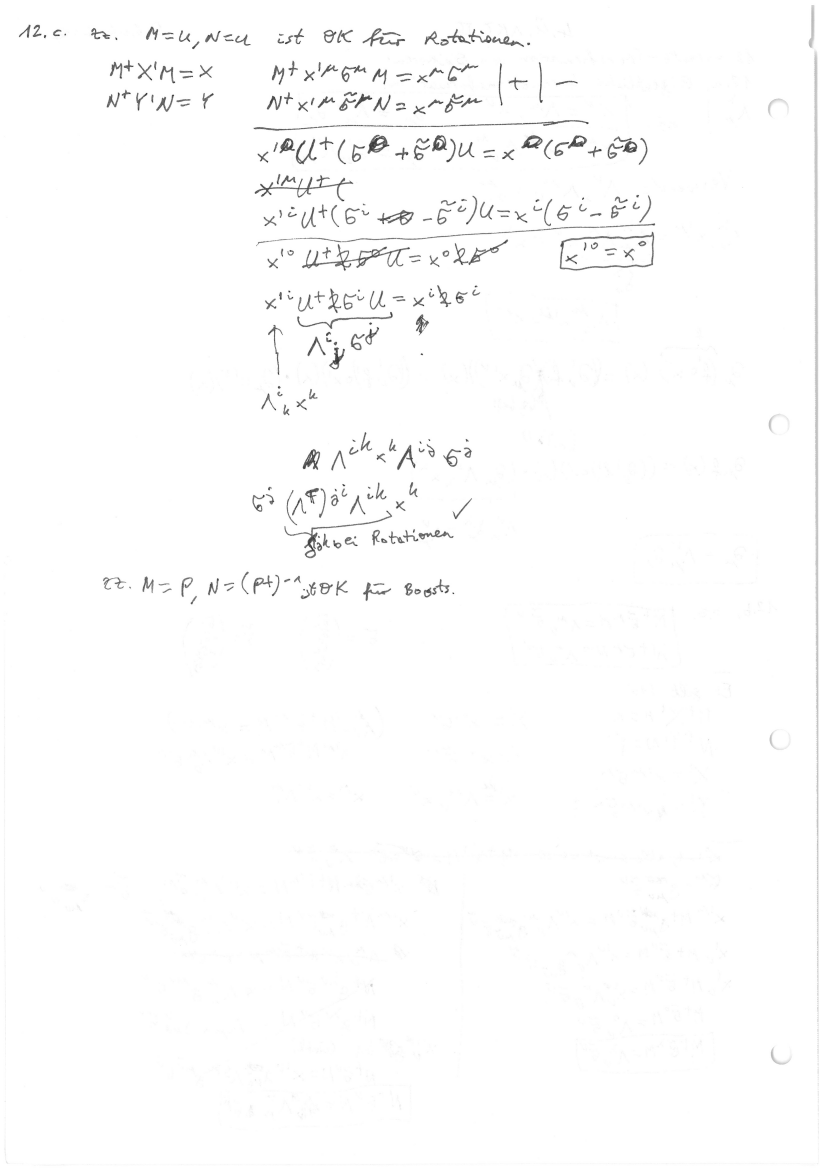 12. c. zz. M=U, N=U ist OK für Rotationen.
M⁺X'M = X   M⁺x'^μ σ^μ M = x^μ σ^μ | + | −
N⁺Y'N = Y   N⁺x'^μ σ̃^μ N = x^μ σ̃^μ
x'^0 U⁺(σ^0 + σ̃^0)U = x^0(σ^0 + σ̃^0)
x'^μ U⁺(
x'^i U⁺(σ^i − σ̃^i)U = x^i(σ^i − σ̃^i)
x'^0 U⁺2σ^0 U = x^0 2σ^0   x'^0 = x^0
x'^i U⁺2σ^i U = x^i 2σ^i
↑ Λ^i_j σ^j
Λ^i_k x^k
Λ^{ik} x^k Λ^{ij} σ^j
σ^j (Λ^T)^{ji} Λ^{ik} x^k ✓
bei Rotationen
zz. M = P, N = (P⁺)^{-1} ist OK für Boosts.